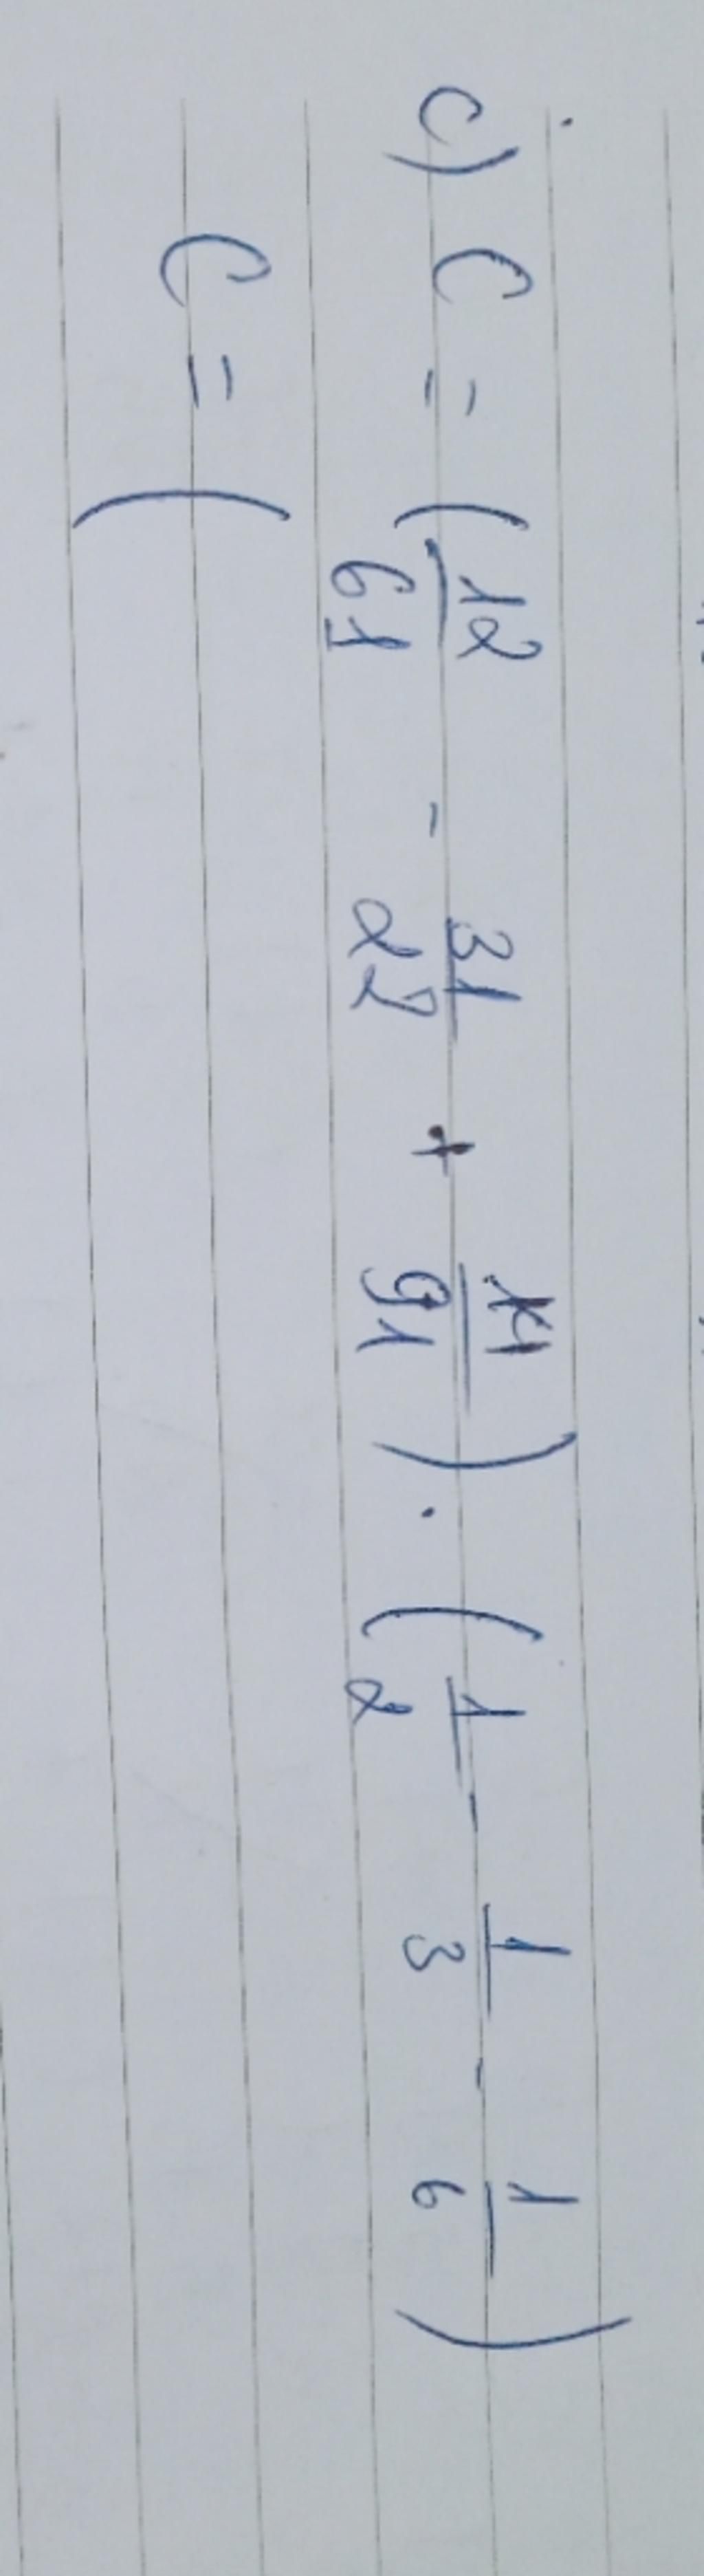 c) C = (12/61 - 31/22 + 14/91) . (1/2 - 1/3 - 1/6)
C = (